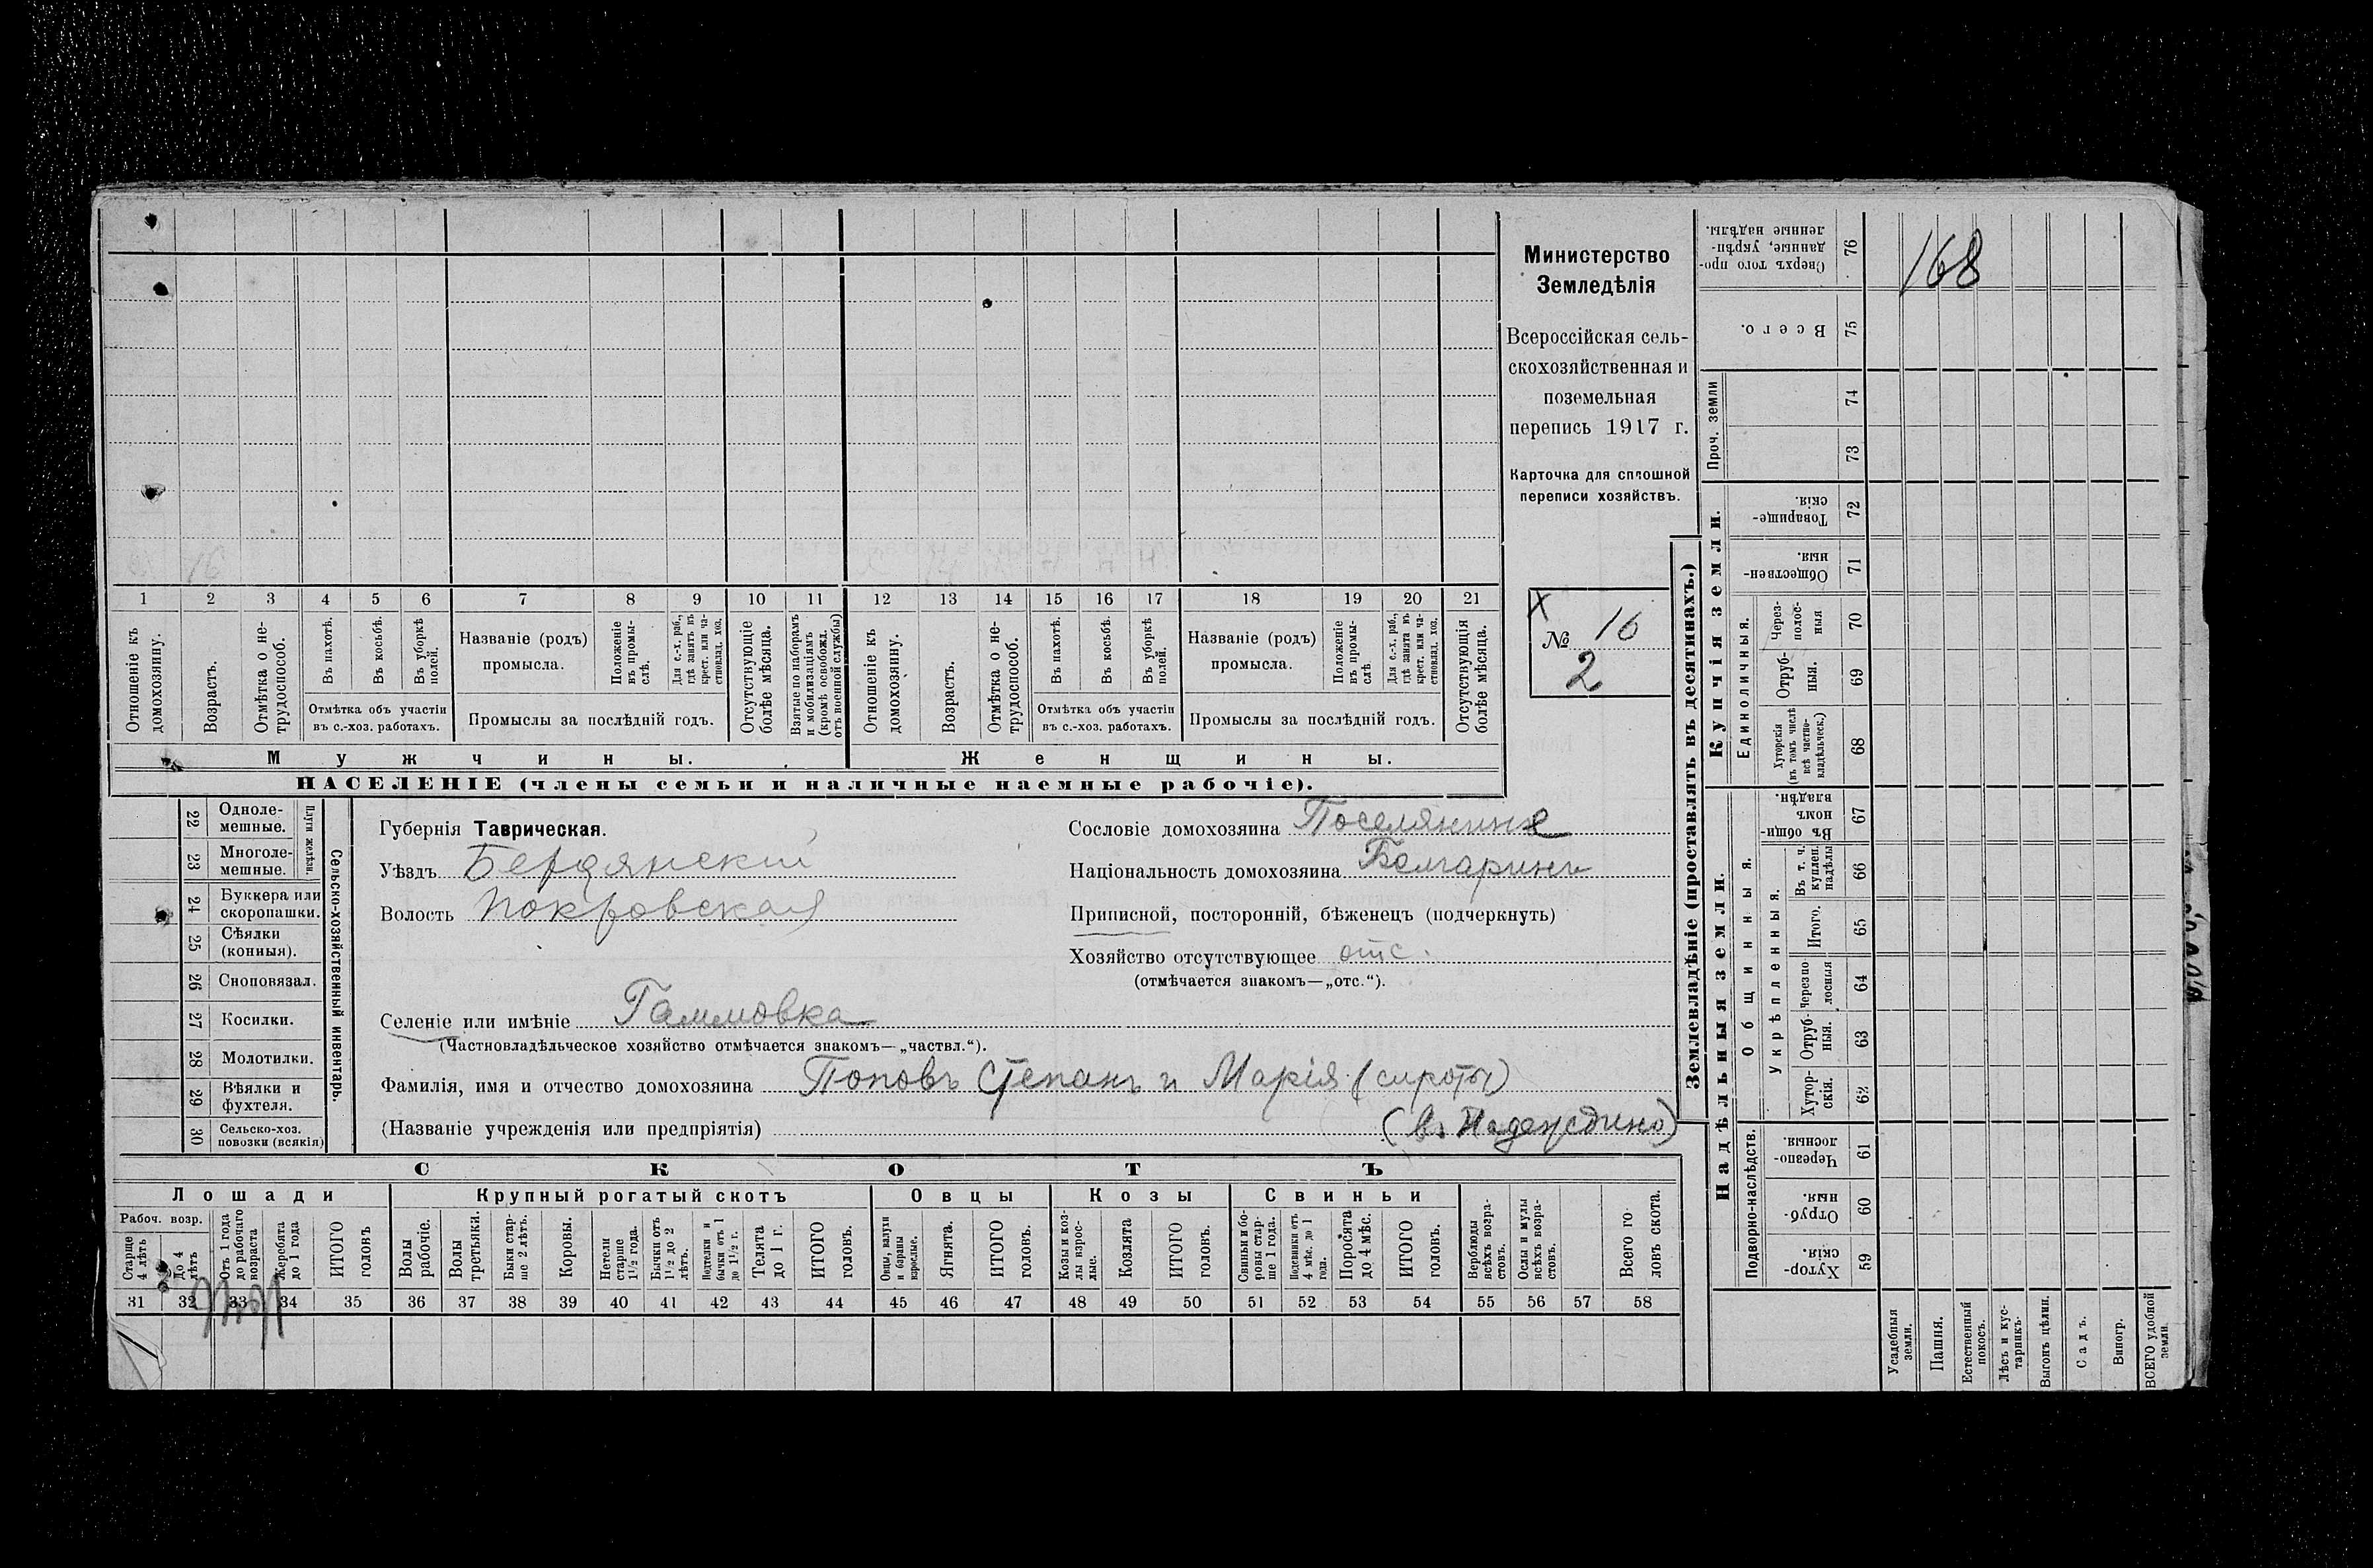 1 2 3 4 5 6 7 8 9 10 11 12 13 14 15 16 17 18 19 20 21
Отношеніе къ домохозяину.
Возрастъ.
Отмѣтка о не-трудоспособ.
Въ пахотѣ.
Въ косьбѣ.
Въ уборкѣ полей.
Отмѣтка объ участіи
въ с.-хоз. работахъ.
Названіе (родъ)
промысла.
Положеніе въ промы-слѣ.
Для с.-х. раб., гдѣ занятъ въ крест. или ча-стновлад. хоз.
Промыслы за послѣдній годъ.
Отсутствующіе болѣе мѣсяца.
Взятые по наборамъ и мобилизаціямъ (кромѣ освобожд. отъ военной службы)
Отношеніе къ домохозяину.
Возрастъ.
Отмѣтка о не-трудоспособ.
Въ пахотѣ.
Въ косьбѣ.
Въ уборкѣ полей.
Отмѣтка объ участіи
въ с.-хоз. работахъ.
Названіе (родъ)
промысла.
Положеніе въ промы-слѣ.
Для с.-х. раб., гдѣ занята въ крест. или ча-стновлад. хоз.
Промыслы за послѣдній годъ.
Отсутствующія болѣе мѣсяца.
Мужчины.
Женщины.
НАСЕЛЕНІЕ (члены семьи и наличные наемные рабочіе).
Министерство
Земледѣлія
Всероссійская сель-
скохозяйственная и
поземельная
перепись 1917 г.
Карточка для сплошной
переписи хозяйствъ.
X
№ 16
2
22 Одноле-мешные.
23 Многоле-мешные.
Плуги желѣзн.
24 Буккера или скоропашки.
25 Сѣялки (конныя).
26 Сноповязал.
27 Косилки.
28 Молотилки.
29 Вѣялки и фухтеля.
30 Сельско-хоз. повозки (всякія)
Сельско-хозяйственный инвентарь.
Губернія Таврическая.
Уѣздъ Бердянскій
Волость Покровская
Сословіе домохозяина Поселянине
Національность домохозяина Болгаринъ
Приписной, посторонній, бѣженецъ (подчеркнуть)
Хозяйство отсутствующее отс.
(отмѣчается знакомъ—„отс.“).
Селеніе или имѣніе Гаммовка
(Частновладѣльческое хозяйство отмѣчается знакомъ—„частвл.“).
Фамилія, имя и отчество домохозяина Поповъ Степанъ и Марія (сироты)
(Названіе учрежденія или предпріятія) (в. Надеждино)
СКОТЪ
Лошади
Крупный рогатый скотъ
Овцы
Козы
Свиньи
Рабоч. возр.
Старше 4 лѣтъ
До 4 лѣтъ
Отъ 1 года до рабочаго возраста
Жеребята до 1 года
ИТОГО головъ
Волы рабочіе.
Волы третьяки.
Быки стар-ше 2 лѣтъ.
Коровы.
Нетели старше 1½ года.
Бычки отъ 1½ до 2 лѣтъ.
Подтелки и бычки отъ 1 до 1½ г.
Телята до 1 г.
ИТОГО головъ.
Овцы, валухи и бараны взрослые.
Ягнята.
ИТОГО головъ.
Козы и коз-лы взрос-лые.
Козлята
ИТОГО головъ.
Свиньи и бо-ровы стар-ше 1 года.
Подсвинки отъ 4 мѣс. до 1 года.
Поросята до 4 мѣс.
ИТОГО головъ.
Верблюды всѣхъ возра-стовъ.
Ослы и мулы всѣхъ возра-стовъ.
Всего го-ловъ скота.
31 32 33 34 35 36 37 38 39 40 41 42 43 44 45 46 47 48 49 50 51 52 53 54 55 56 57 58
Землевладѣніе (проставлять въ десятинахъ.)
168
Сверхъ того про-данные, укрѣп-ленные надѣлы. 76
Всего. 75
Проч. земли
74
73
Купчія земли.
Товарище-скія. 72
Обществен-ныя. 71
Единоличныя.
Через-полос-ныя 70
Отруб-ныя. 69
Хуторскія (въ томъ числѣ всѣ частно-владѣльческ.) 68
Надѣльныя земли.
Общинныя.
Въ общин-номъ владѣн. 67
Укрѣпленныя.
Въ т. ч. куплен. надѣлы 66
Итого. 65
Черезпо-лосныя 64
Отруб-ныя. 63
Хутор-скія. 62
Подворно-наслѣдств.
Черезпо-лосныя. 61
Отруб-ныя. 60
Хутор-скія. 59
Усадебныя земли.
Пашня.
Естественный покосъ.
Лѣсъ и кус-тарникъ.
Выгонъ цѣлин.
Садъ.
Виногр.
ВСЕГО удобной земли.